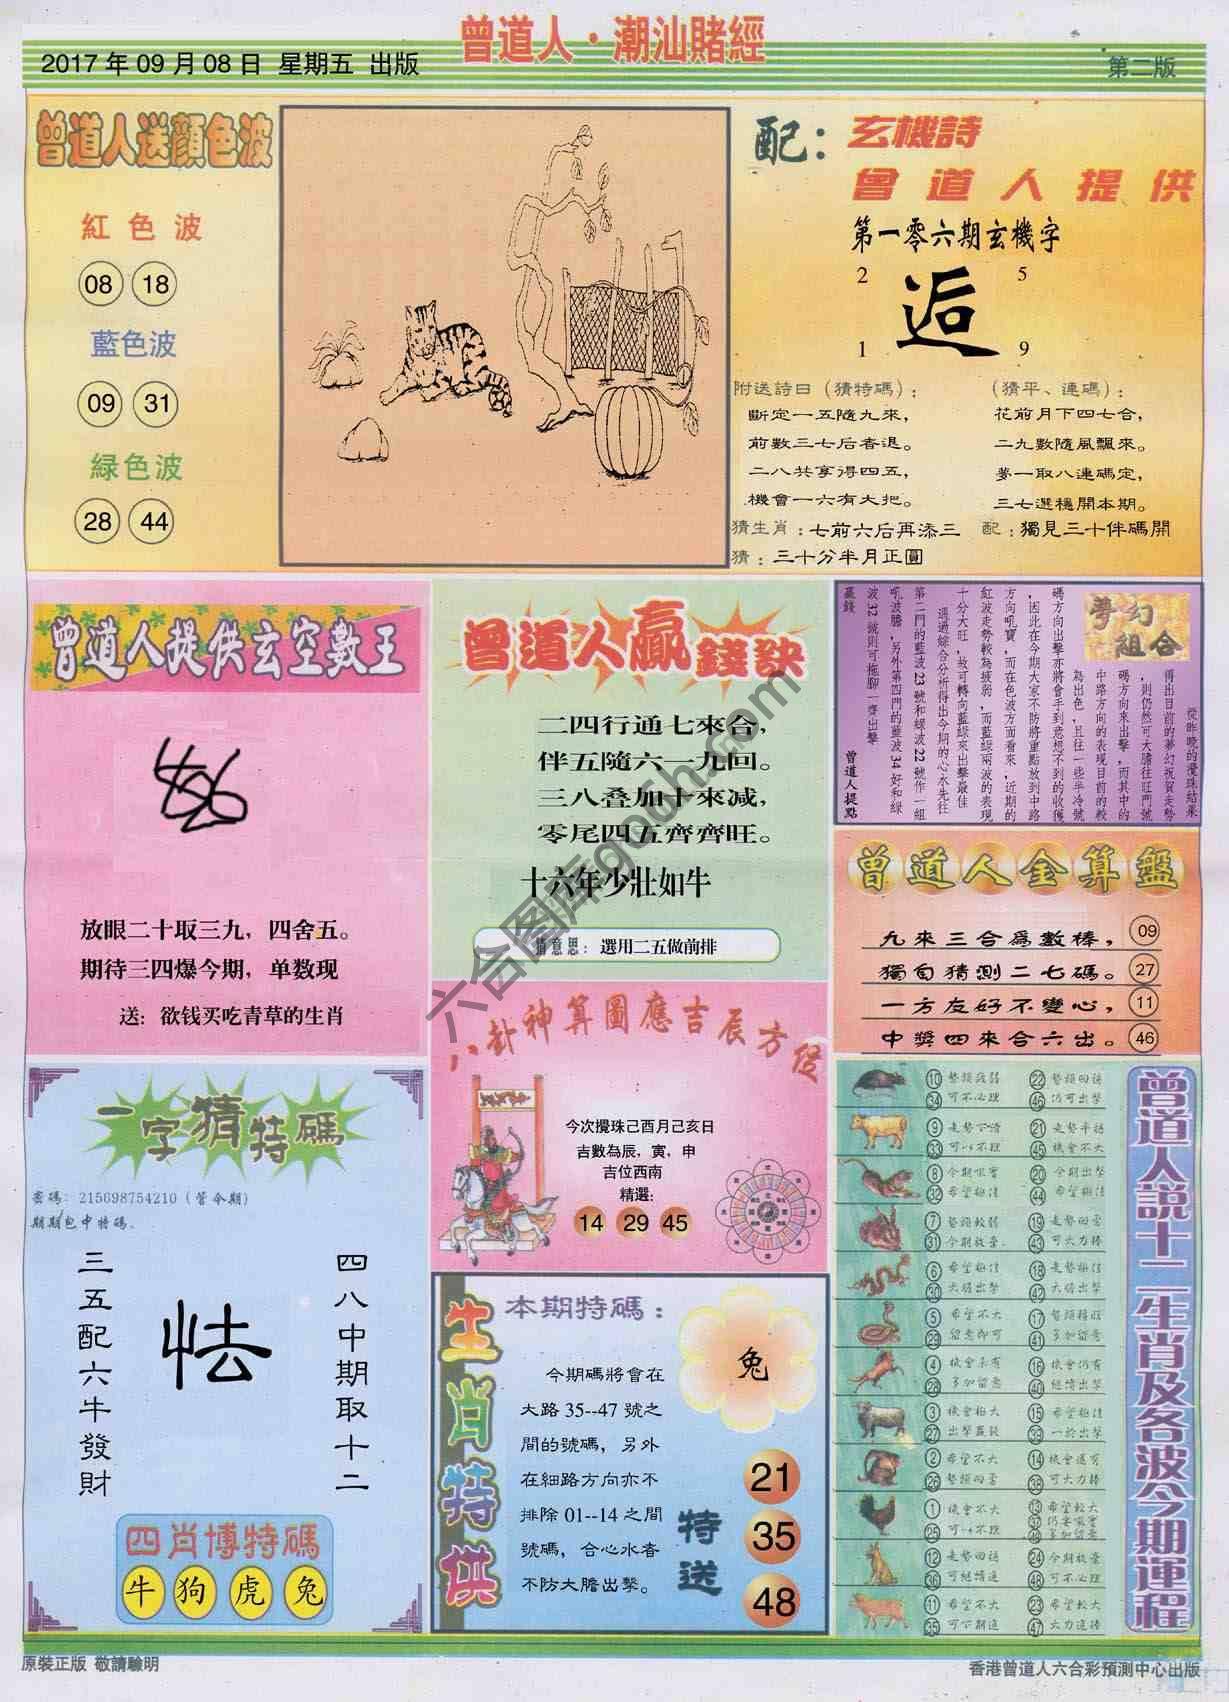 曾道人·潮汕賭經
2017年09月08日 星期五 出版
第二版
曾道人送顏色波
紅色波
08 18
藍色波
09 31
緑色波
28 44
配：玄機詩
曾道人提供
第一零六期玄機字
2 5
逅
1 9
附送詩曰（猜特碼）：
斷定一五隨九來，
前數三七后香退。
二八共享得四五，
機會一六有大把。
（猜平、連碼）：
花前月下四七合，
二九數隨風飄來。
夢一取八連碼定，
三七選穩開本期。
猜生肖：七前六后再添三
配：獨見三十伴碼開
猜：三十分半月正圓
曾道人提供玄空數王
放眼二十取三九，四舍五。
期待三四爆今期，单数现
送：欲钱买吃青草的生肖
曾道人贏錢訣
二四行通七來合，
伴五隨六一九回。
三八叠加十來减，
零尾四五齊齊旺。
十六年少壯如牛
猜意思：選用二五做前排
夢幻組合
從昨晚的攪珠結果
得出目前的夢幻祝賀走勢
，則仍然可大膽往旺門號
碼方向來出擊，而其中的
中路方向的表現目前的較
為出色，且往一些半冷號
碼方向出擊亦將會手到意想不到的收獲
，因此在今期大家不防將重點放到中路
方向吼寶，而在色波方面看來，近期的
紅波走勢較為疲弱，而藍緑兩波的表現
十分大旺，故可轉向藍緑來出擊最佳
通過綜合分析得出今期的心水先往
第二門的藍波23號和緑波22號作一組
吼波膽，另外第四門的藍波34好和緑
波32號則可拖腳一齊出擊
贏錢
曾道人提點
曾道人金算盤
九來三合爲數棒， 09
獨旬猜測二七碼。 27
一方友好不變心， 11
中獎四來合六出。 46
八卦神算圖應吉辰方位
今次攪珠己酉月己亥日
吉數為辰，寅，申
吉位西南
精選：
14 29 45
一字猜特碼
密碼：215698754210（管令期）
期期包中特碼.
三五配六牛發財
怯
四八中期取十二
四肖博特碼
牛 狗 虎 兔
生肖特供
本期特碼：
兔
今期碼將會在
大路35--47號之
間的號碼，另外
在細路方向亦不
排除01--14之間
號碼，合心水香
不防大膽出擊。
特送
21
35
48
曾道人説十二生肖及各波今期運程
10 勢頻疲弱 22 勢頻回穩
34 可不必理 46 仍可出擊
9 21 走勢平穩
33 可以不理 45 機會不大
8 今期吸實 20 今期出擊
32 希望極佳 44 希望極佳
7 勢頻較弱 19 走勢回雲
31 今期放棄 43 可大力捧
6 希望極佳 18 走勢極佳
30 大膽出擊 42 大膽出擊
5 希望不大 17
29 留意即可 41 多加留意
4 機會未有 16 機會仍有
28 多加留意 40 繼續出擊
3 機會極大 15 希望極佳
27 出擊贏錢 39 一於出擊
2 希望不大 14 機會還可
26 38 可大力捧
1 機會不大 13 希望較大
25 可以不理 37
49 多加留意
12 走勢回穩 24 今期放棄
36 可繼續追 48 可不必理
11 希望不大 23 希望較大
35 可下期追 47 大力追捧
原裝正版 敬請驗明
香港曾道人六合彩預測中心出版
六合图库gooh.com